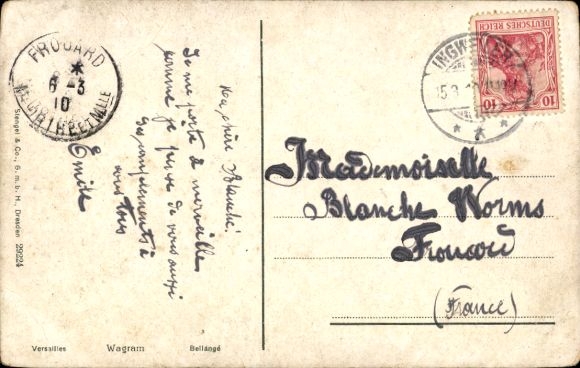 FROUARD
6-3
10
MEURTHE ET MLLE
Ma chère Blanche!
Je me porte à merveille
comme je pense de vous aussi
Mes compliments à
vous tous
Emile
Stengel & Co., G. m. b. H., Dresden 29224
Versailles Wagram Bellangé
INGWEILER
15.3.1
DEUTSCHES REICH
10 10
Mademoiselle
Blanche Worms
Frouard
(France)